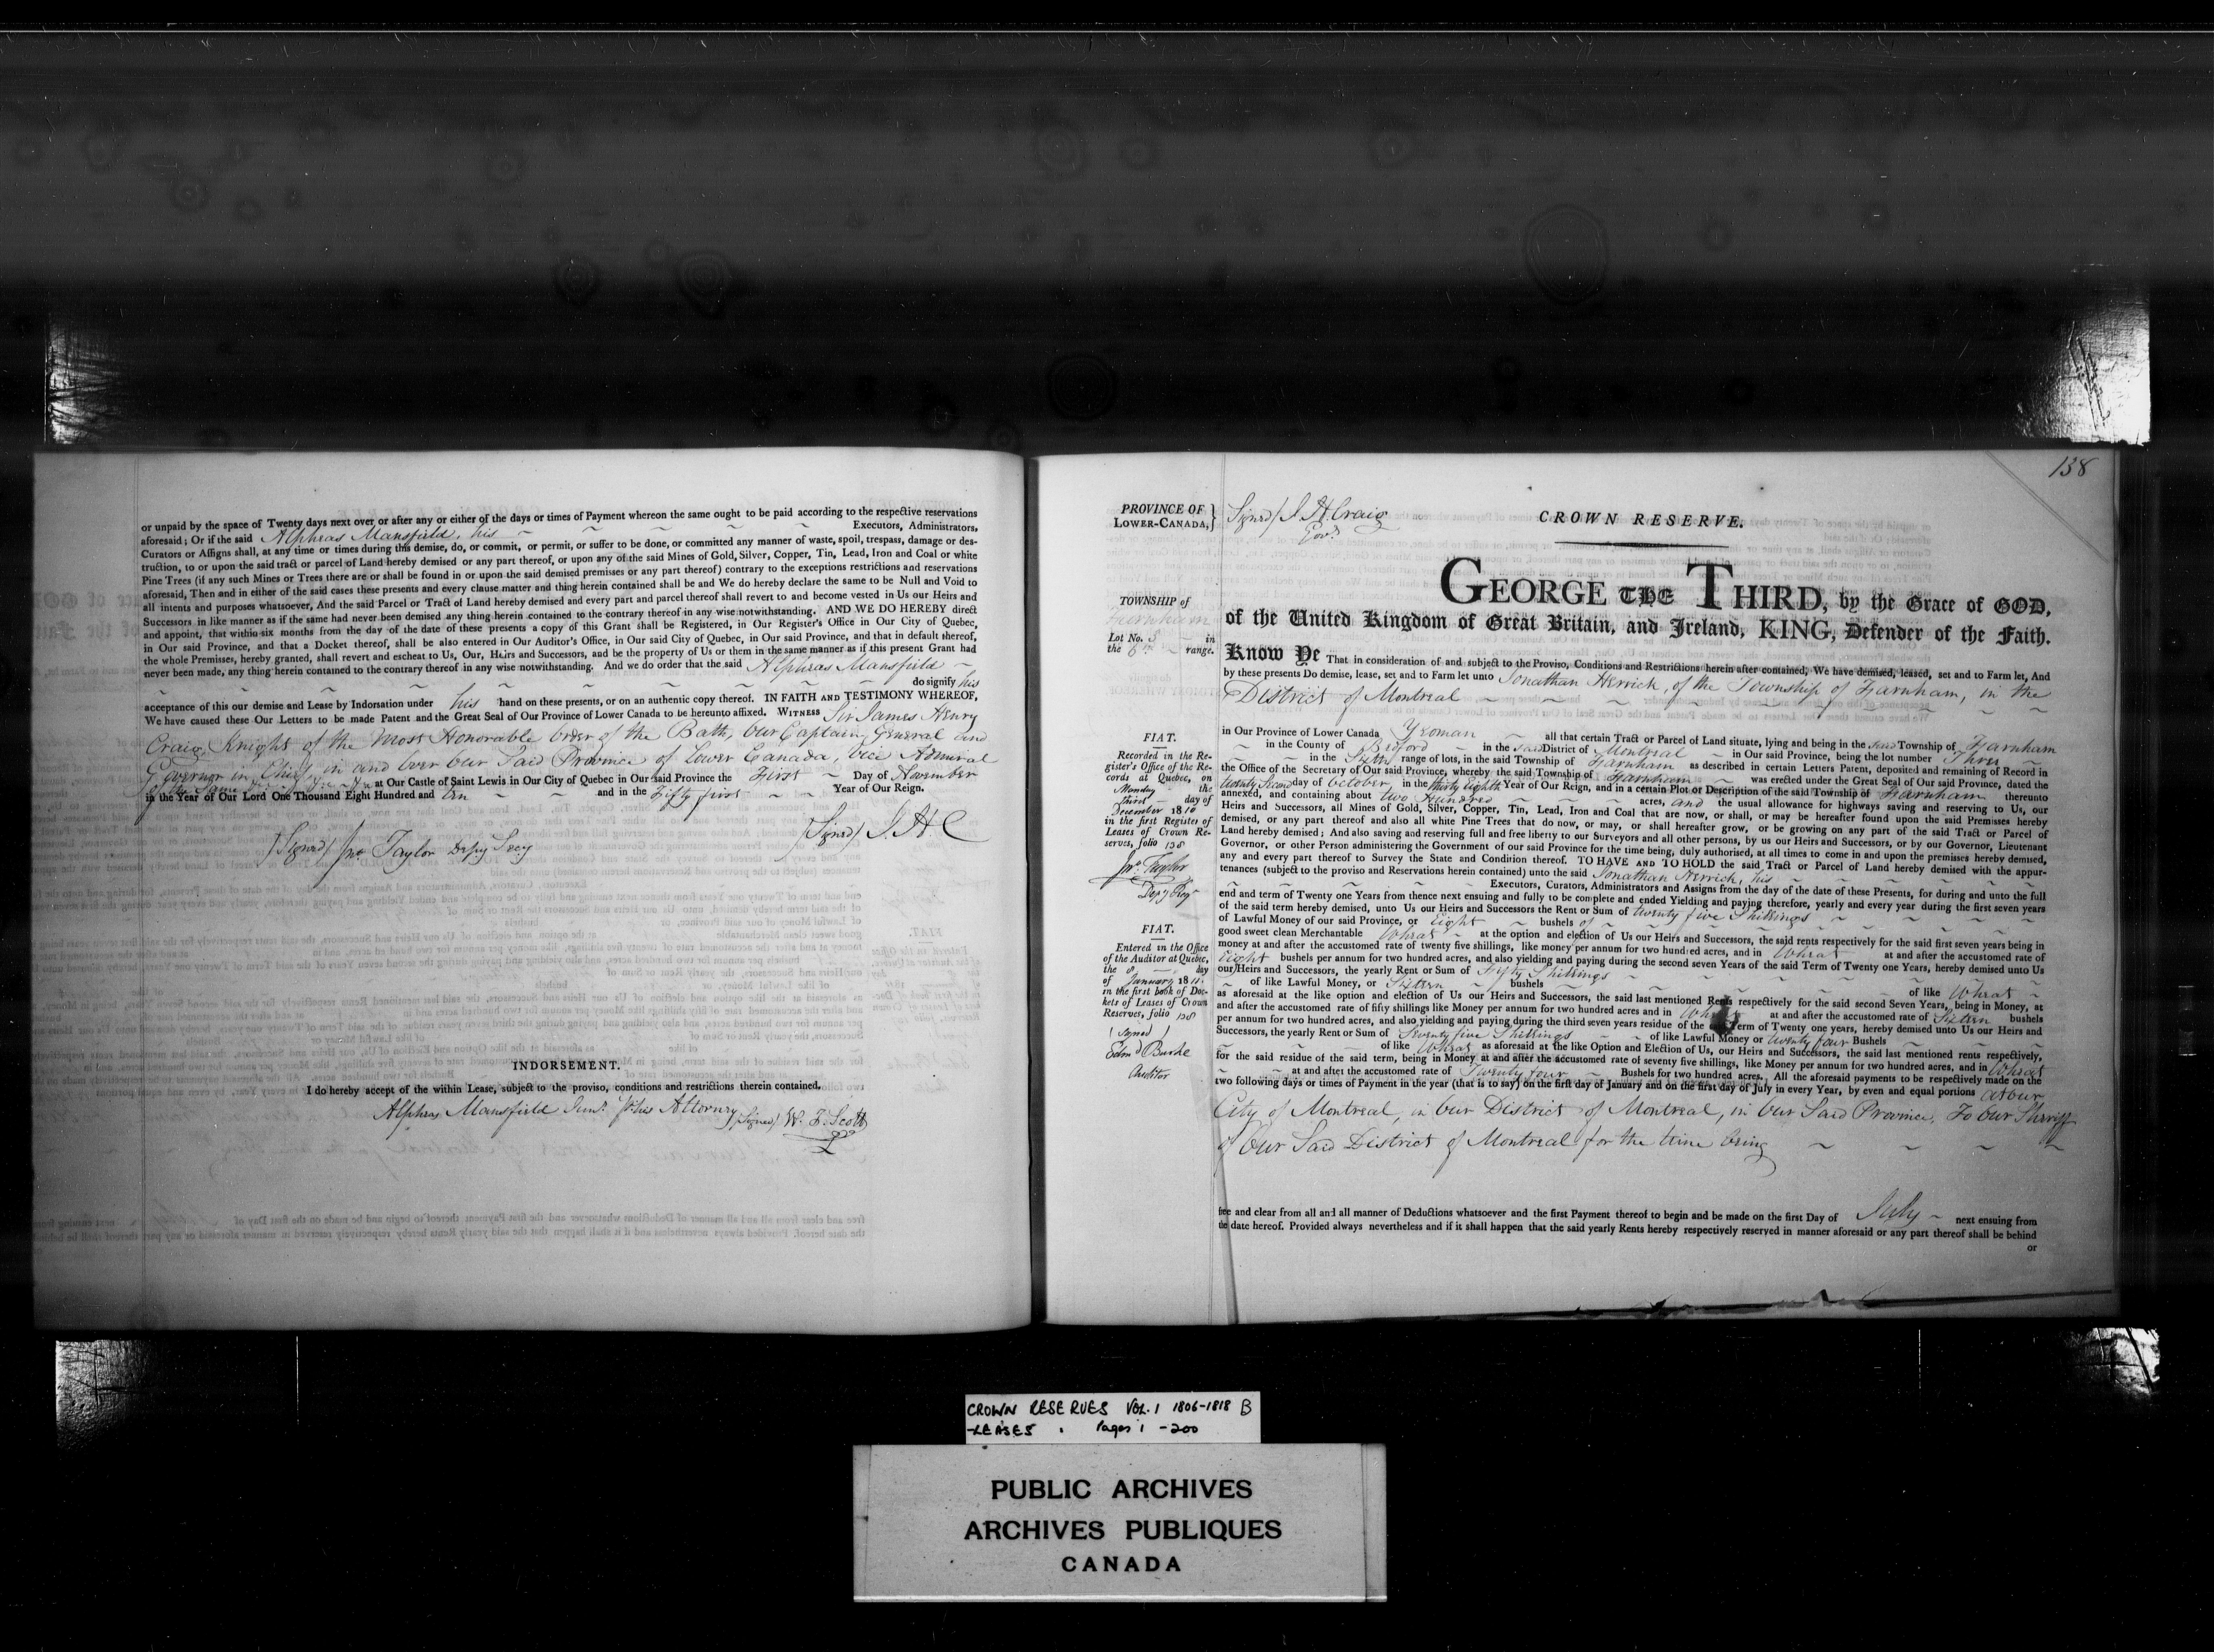 or unpaid by the space of Twenty days next over or after any or either of the days or times of Payment whereon the same ought to be paid according to the respective reservations
aforesaid; Or if the said Alphras Mansfield, his ~ ~ ~ Executors, Administrators,
Curators or Assigns shall, at any time or times during this demise, do, or commit, or permit, or suffer to be done, or committed any manner of waste, spoil, trespass, damage or des-
truction, to or upon the said tract or parcel of Land hereby demised or any part thereof, or upon any of the said Mines of Gold, Silver, Copper, Tin, Lead, Iron and Coal or white
Pine Trees (if any such Mines or Trees there are or shall be found in or upon the said demised premises or any part thereof) contrary to the exceptions restrictions and reservations
aforesaid, Then and in either of the said cases these presents and every clause matter and thing herein contained shall be and We do hereby declare the same to be Null and Void to
all intents and purposes whatsoever, And the said Parcel or Tract of Land hereby demised and every part and parcel thereof shall revert to and become vested in Us our Heirs and
Successors in like manner as if the same had never been demised any thing herein contained to the contrary thereof in any wise notwithstanding. AND WE DO HEREBY direct
and appoint, that within six months from the day of the date of these presents a copy of this Grant shall be Registered, in Our Register's Office in Our City of Quebec,
in Our said Province, and that a Docket thereof, shall be also entered in Our Auditor's Office, in Our said City of Quebec, in Our said Province, and that in default thereof,
the whole Premises, hereby granted, shall revert and escheat to Us, Our, Heirs and Successors, and be the property of Us or them in the same manner as if this present Grant had
never been made, any thing herein contained to the contrary thereof in any wise notwithstanding. And we do order that the said Alphras Mansfield ~
do signify his
acceptance of this our demise and Lease by Indorsation under his hand on these presents, or on an authentic copy thereof. IN FAITH AND TESTIMONY WHEREOF,
We have caused these Our Letters to be made Patent and the Great Seal of Our Province of Lower Canada to be hereunto affixed. WITNESS Sir James Henry
Craig, Knight of the Most Honorable Order of the Bath, Our Captain General and
Governor in Chief in and over Our Said Province of Lower Canada, Vice Admiral
of the Same at Our Castle of Saint Lewis in Our City of Quebec in Our said Province the First ~ Day of November
in the Year of Our Lord One Thousand Eight Hundred and Ten ~ ~ and in the Fifty first ~ ~ Year of Our Reign.
(Signed) J. H. C
(Signed) Jno. Taylor Depy Secy
INDORSEMENT.
I do hereby accept of the within Lease, subject to the proviso, conditions and restrictions therein contained.
Alphras Mansfield Junr. pr his Attorney (Signed) W. F. Scott
138
PROVINCE OF
LOWER-CANADA, }
Signed/ J. H. Craig
Govr.
CROWN RESERVE.
TOWNSHIP of
Farnham
Lot No. 3 ~ in
the 6 ~ range.
GEORGE THE THIRD, by the Grace of GOD,
of the United Kingdom of Great Britain, and Ireland, KING, Defender of the Faith.
Know Ye That in consideration of and subject to the Proviso, Conditions and Restrictions herein after contained, We have demised, leased, set and to Farm let, And
by these presents Do demise, lease, set and to Farm let unto Jonathan Herrick, of the Township of Farnham, in the
District of Montreal ~ ~ ~
in Our Province of Lower Canada Yeoman ~ all that certain Tract or Parcel of Land situate, lying and being in the said Township of Farnham
~ in the County of Bedford ~ in the said District of Montreal ~ in Our said Province, being the lot number Three ~
~ in the Sixth range of lots, in the said Township of Farnham as described in certain Letters Patent, deposited and remaining of Record in
the Office of the Secretary of Our said Province, whereby the said Township of Farnham ~ was erected under the Great Seal of Our said Province, dated the
twenty Second day of October in the thirty Eighth Year of Our Reign, and in a certain Plot or Description of the said Township of Farnham thereunto
annexed, and containing about two Hundred ~ acres, and the usual allowance for highways saving and reserving to Us, our
Heirs and Successors, all Mines of Gold, Silver, Copper, Tin, Lead, Iron and Coal that are now, or shall, or may be hereafter found upon the said Premises hereby
demised, or any part thereof and also all white Pine Trees that do now, or may, or shall hereafter grow, or be growing on any part of the said Tract or Parcel of
Land hereby demised; And also saving and reserving full and free liberty to our Surveyors and all other persons, by us our Heirs and Successors, or by our Governor, Lieutenant
Governor, or other Person administering the Government of our said Province for the time being, duly authorised, at all times to come in and upon the premises hereby demised,
any and every part thereof to Survey the State and Condition thereof. TO HAVE AND TO HOLD the said Tract or Parcel of Land hereby demised with the appur-
tenances (subject to the proviso and Reservations herein contained) unto the said Jonathan Herrick, his ~
~ Executors, Curators, Administrators and Assigns from the day of the date of these Presents, for during and unto the full
end and term of Twenty one Years from thence next ensuing and fully to be complete and ended Yielding and paying therefore, yearly and every year during the first seven years
of the said term hereby demised, unto Us our Heirs and Successors the Rent or Sum of twenty five Shillings ~
of Lawful Money of our said Province, or Eight ~ bushels of ~
good sweet clean Merchantable Wheat ~ at the option and election of Us our Heirs and Successors, the said rents respectively for the said first seven years being in
money at and after the accustomed rate of twenty five shillings, like money per annum for two hundred acres, and in Wheat at and after the accustomed rate of
Eight bushels per annum for two hundred acres, and also yielding and paying during the second seven Years of the said Term of Twenty one Years, hereby demised unto Us
our Heirs and Successors, the yearly Rent or Sum of Fifty Shillings ~
~ of like Lawful Money, or Sixteen ~ bushels ~ of like Wheat ~
as aforesaid at the like option and election of Us our Heirs and Successors, the said last mentioned Rents respectively for the said second Seven Years, being in Money, at
and after the accustomed rate of fifty shillings like Money per annum for two hundred acres and in Wheat at and after the accustomed rate of Sixteen bushels
per annum for two hundred acres, and also yielding and paying during the third seven years residue of the Term of Twenty one years, hereby demised unto Us our Heirs and
Successors, the yearly Rent or Sum of Seventy five Shillings ~ of like Lawful Money or twenty four Bushels
of like Wheat as aforesaid at the like Option and Election of Us, our Heirs and Successors, the said last mentioned rents respectively,
for the said residue of the said term, being in Money at and after the accustomed rate of seventy five shillings, like Money per annum for two hundred acres, and in Wheat
~ at and after the accustomed rate of Twenty four ~ Bushels for two hundred acres. All the aforesaid payments to be respectively made on the
two following days or times of Payment in the year (that is to say) on the first day of January and on the first day of July in every Year, by even and equal portions at our
City of Montreal, in Our District of Montreal, in Our Said Province, To Our Sheriff
of Our Said District of Montreal for the time being ~ ~ ~ ~
free and clear from all and all manner of Deductions whatsoever and the first Payment thereof to begin and be made on the first Day of July ~ next ensuing from
the date hereof. Provided always nevertheless and if it shall happen that the said yearly Rents hereby respectively reserved in manner aforesaid or any part thereof shall be behind
or
FIAT.
Recorded in the Re-
gister's Office of the Re-
cords at Quebec, on
Monday the
third day of
December 1810
in the first Register of
Leases of Crown Re-
serves, folio 138
Jno. Taylor
Depy Regr
FIAT.
Entered in the Office
of the Auditor at Quebec,
the 8 day
of January 1811.
in the first book of Doc-
kets of Leases of Crown
Reserves, folio 138
(Signed)
Edmd Burke
Auditor
CROWN RESERVES VOL. 1 1806-1818 B
-LEASES . Pages 1 -200
PUBLIC ARCHIVES
ARCHIVES PUBLIQUES
CANADA